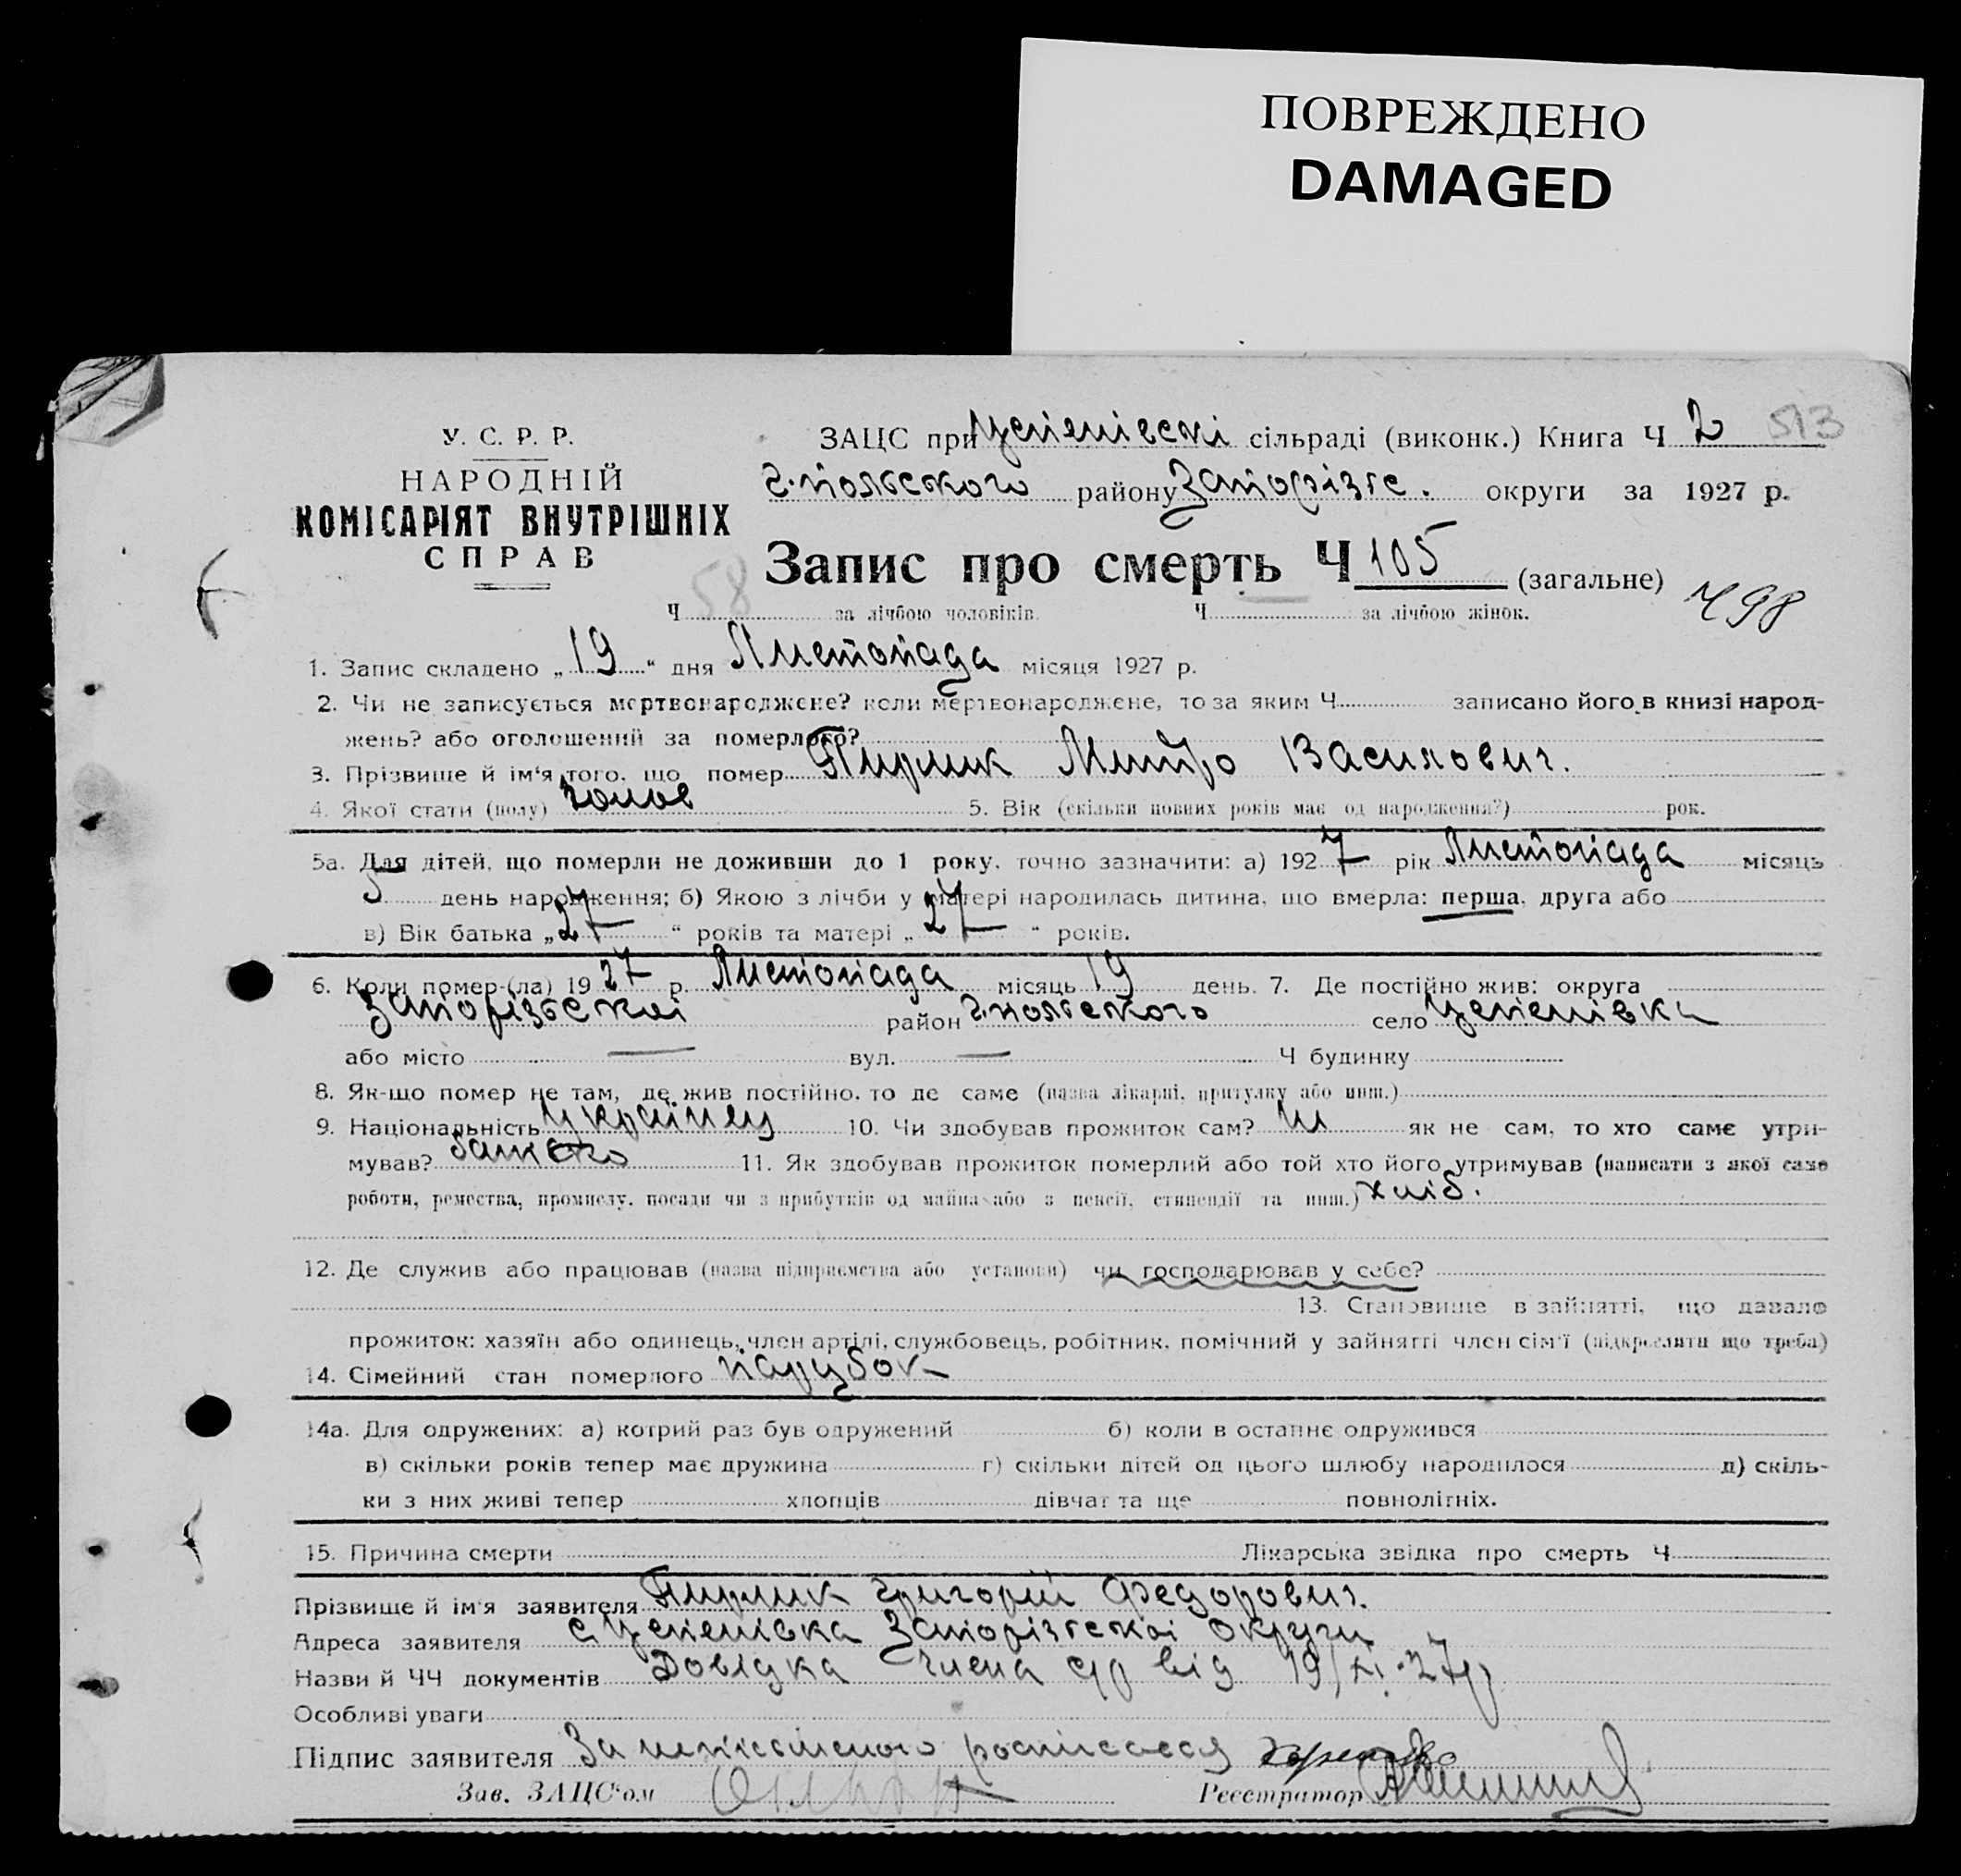 ПОВРЕЖДЕНО
DAMAGED
У. С. Р. Р.
НАРОДНІЙ
КОМІСАРІЯТ ВНУТРІШНІХ
СПРАВ
ЗАЦС при сільраді (виконк.) Книга Ч 2 513
г.-польського району Запорізьс. округи за 1927 р.
Запис про смерть Ч 105 (загальне) 498
Ч 58 за лічбою чоловіків. Ч за лічбою жінок.
1. Запис складено „19“ дня Листопада місяця 1927 р.
2. Чи не записується мертвонароджене? коли мертвонароджене, то за яким Ч записано його в книзі народ-
жень? або оголошений за померлого?
3. Прізвище й ім'я того, що помер Пирлик Митро Василович.
4. Якої стати (полу) чолов 5. Вік (скільки повних років має од народження?) рок.
5а. Для дітей, що померли не доживши до 1 року, точно зазначити: а) 1927 рік Листопада місяць
5 день народження; б) Якою з лічби у матері народилась дитина, що вмерла: перша, друга або
в) Вік батька „27“ років та матері „27“ років.
6. Коли помер-(ла) 1927 р. Листопада місяць 19 день. 7. Де постійно жив: округа
Запорізьскої район г.-польского село
або місто — вул. — Ч будинку
8. Як-що помер не там, де жив постійно, то де саме (назва лікарні, притулку або инш.)
9. Національність Українец 10. Чи здобував прожиток сам? ні як не сам, то хто саме утри-
мував? батько 11. Як здобував прожиток померлий або той хто його утримував (написати з якої саме
роботи, ремества, промислу, посади чи з прибутків од майна або з пенсії, стипендії та инш.) хліб.
12. Де служив або працював (назва підприємства або установи) чи господарював у себе?
13. Становище в зайнятті, що давало
прожиток: хазяїн або одинець, член артілі, службовець, робітник, помічний у зайнятті член сім'ї (підкреслити що треба)
14. Сімейний стан померлого парубок
14а. Для одружених: а) котрий раз був одружений б) коли в останнє одружився
в) скільки років тепер має дружина г) скільки дітей од цього шлюбу народилося д) скіль-
ки з них живі тепер хлопців дівчат та ще повнолітніх.
15. Причина смерти Лікарська звідка про смерть Ч
Прізвище й ім'я заявителя Пирлик Григорій Федорович.
Адреса заявителя с Запорізської округи
Назви й ЧЧ документів Довідка члена с/р від 19/XI.27 р
Особливі уваги
Підпис заявителя За неписьменого росписався
Зав. ЗАЦС'ом Реєстратор